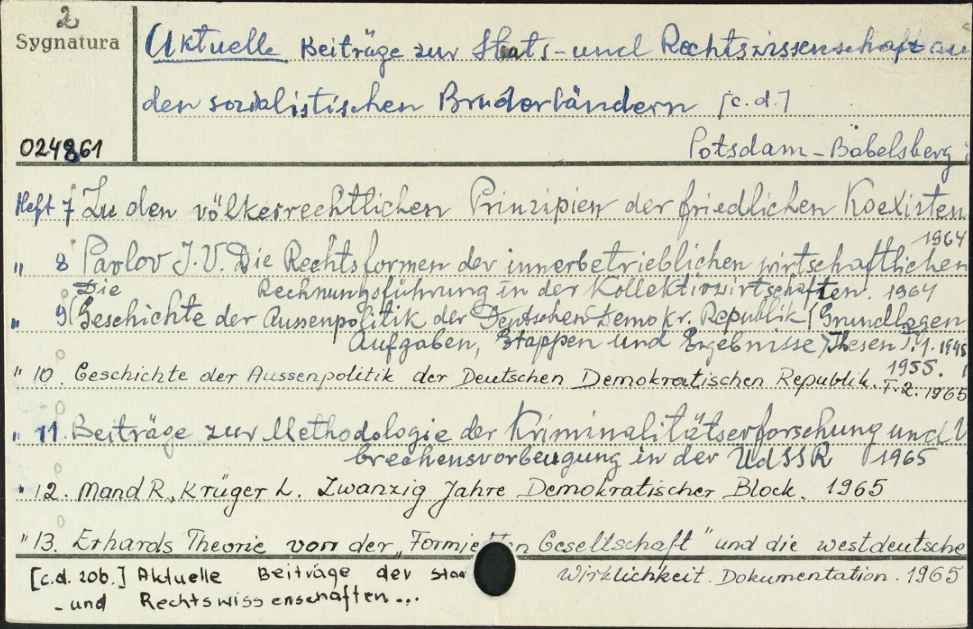 2
Sygnatura
024861
Aktuelle Beiträge zur Staats-und Rechtswissenschaft au
den sozialistischen Bruderländern [c.d.]
Potsdam-Babelsberg
Heft 7 Zu den völkerrechtlichen Prinzipien der friedlichen Koexisten
1964
" 8 Pavlov J.V. Die Rechtsformen der innerbetrieblichen wirtschaftlichen
Rechnungsführung in der Kollektivwirtschaften. 1964
" 9 Die (Geschichte der Aussenpolitik der Deutschen Demokr. Republik (Grundlagen
Aufgaben, Etappen und Ergebnisse) Thesen T.1. 1945
1955.
" 10. Geschichte der Aussenpolitik der Deutschen Demokratischen Republik. T.2. 1965
" 11. Beiträge zur Methodologie der Kriminalitätserforschung und V
brechensvorbeugung in der UdSSR 1965
" 12. Mand R., Krüger L. Zwanzig Jahre Demokratischer Block. 1965
" 13. Erhards Theorie von der „Formierten Gesellschaft" und die westdeutsche
Wirklichkeit. Dokumentation. 1965
[c.d. zob.] Aktuelle Beiträge der Staa
-und Rechtswissenschaften...